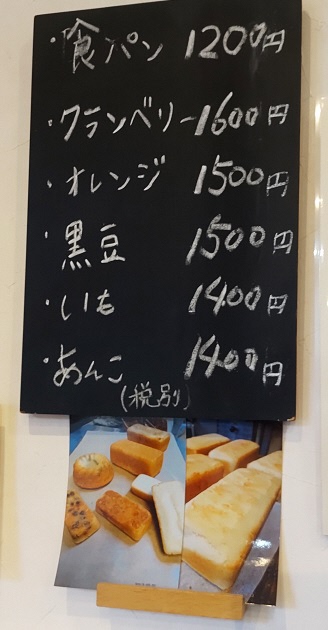 ・食パン 1200円
・クランベリー 1600円
・オレンジ 1500円
・黒豆 1500円
・いも 1400円
・あんこ 1400円
(税別)